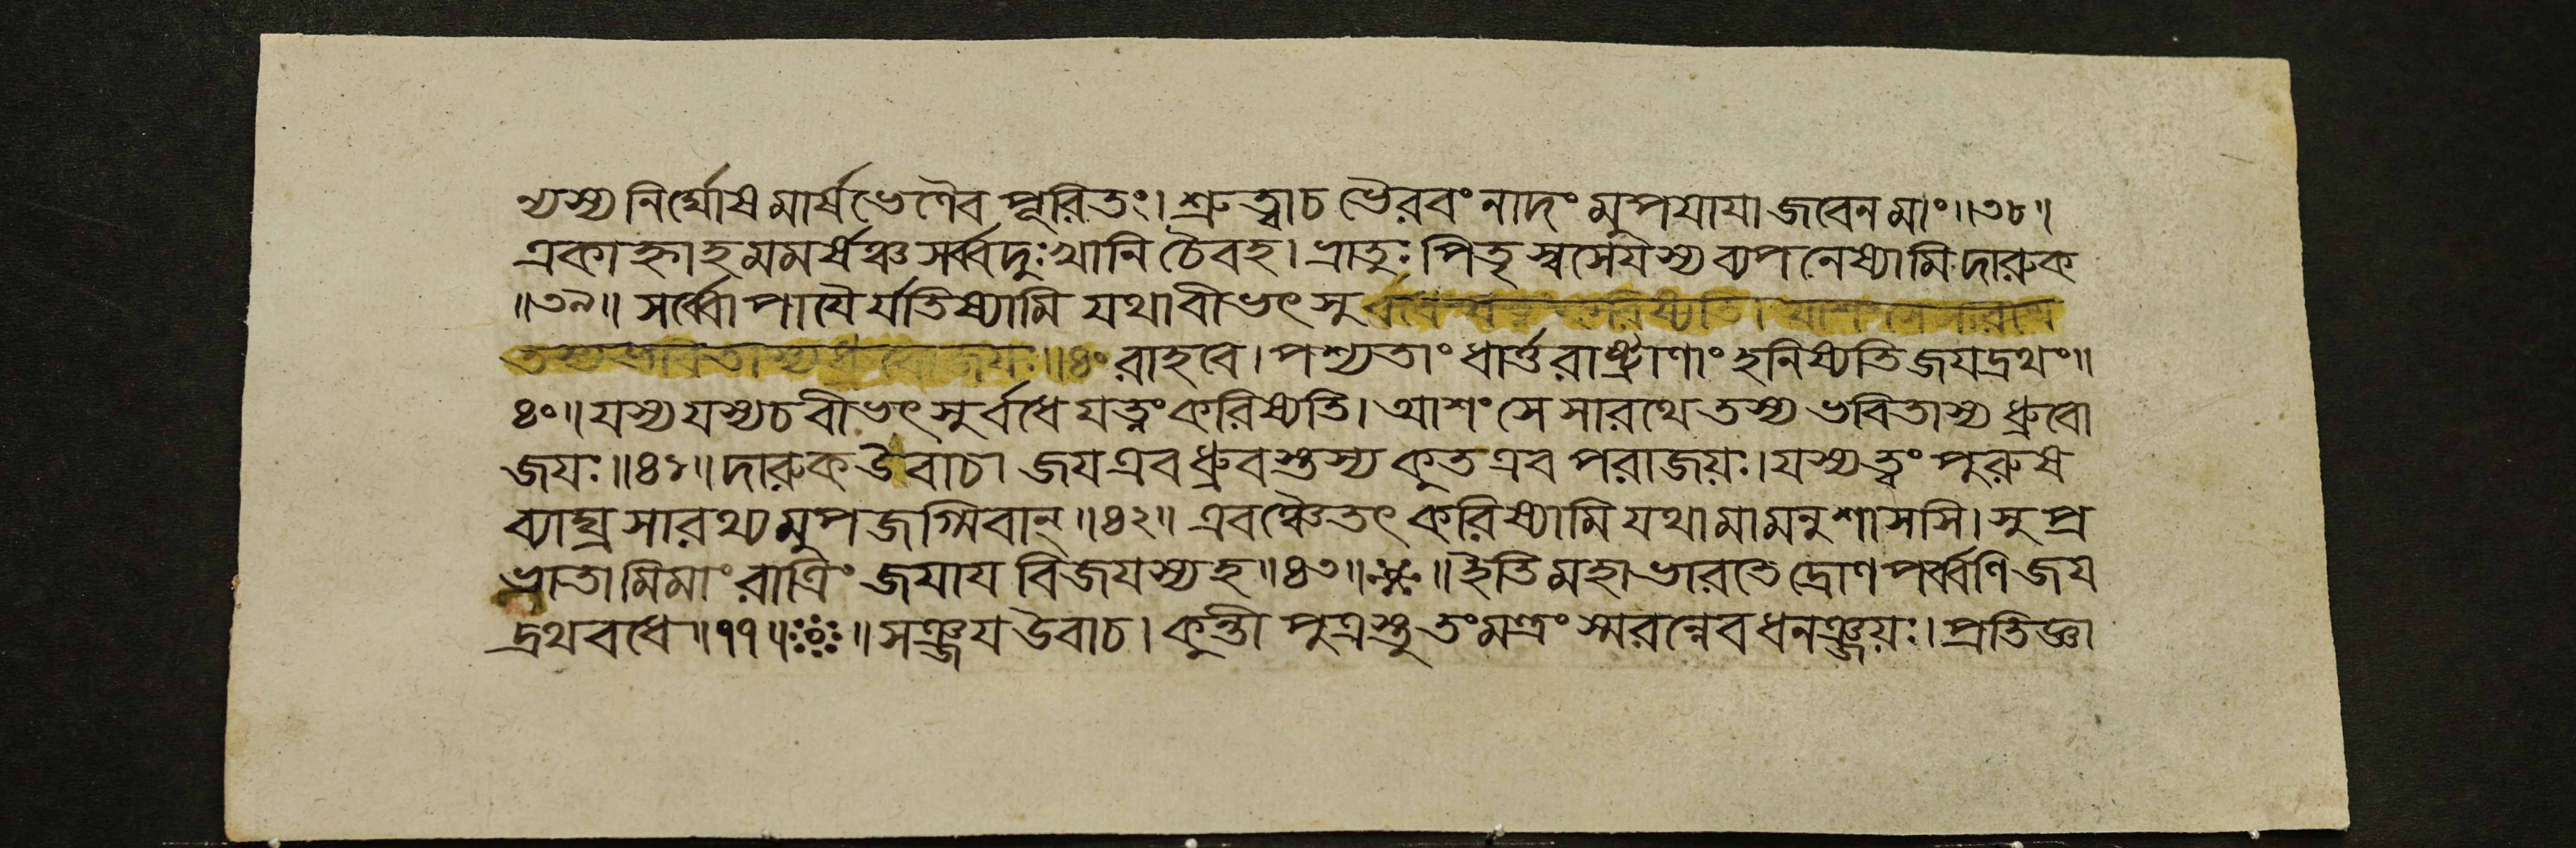 ন্যস্য নির্ঘোষমার্ষভেণৈব পূরিতং। শ্রুত্বা চ ভৈরবং নাদং মুপযাযা জবেন মাং॥৩৮॥
একাহ্নাহমমর্ষঞ্চ সর্ব্বদুঃখানি চৈবহ। ভ্রাতুঃ পিতৃস্বসেযস্য ব্যপনেষ্যামি দারুক
॥৩৯॥ সর্ব্বোপাযৈর্যতিষ্যামি যথা বীভৎসু র্বধে যত্নং করিষ্যতি। আশংসে সারথে
তস্য ভবিতাস্য ধ্রুবো জযঃ॥৪॰ রাহবে। পশ্যতাং ধার্ত্তরাষ্ট্রাণাং হনিষ্যতি জযদ্রথং॥
৪॰॥ যস্য যস্য চ বীভৎসুর্বধে যত্নং করিষ্যতি। আশংসে সারথে তস্য ভবিতাস্য ধ্রুবো
জযঃ॥৪১॥ দারুক উবাচ। জয এব ধ্রুবস্তস্য কুত এব পরাজয়ঃ। যস্য ত্বং পুরুষ
ব্যাঘ্র সারথ্যমুপজগ্মিবান্॥৪২॥ এবঞ্চৈতৎ করিষ্যামি যথা মামনুশাসসি। সুপ্র
ভ্রাতামিমাং রাত্রিং জযায বিজযস্য হ॥৪৩॥ ॥ ইতি মহাভারতে দ্রোণপর্ব্বণি জয
দ্রথবধে॥৭৭॥ ॥ সঞ্জয উবাচ। কুন্তীপুত্রস্তু তং মন্ত্রং স্মরন্নেব ধনঞ্জয়ঃ। প্রতিজ্ঞা